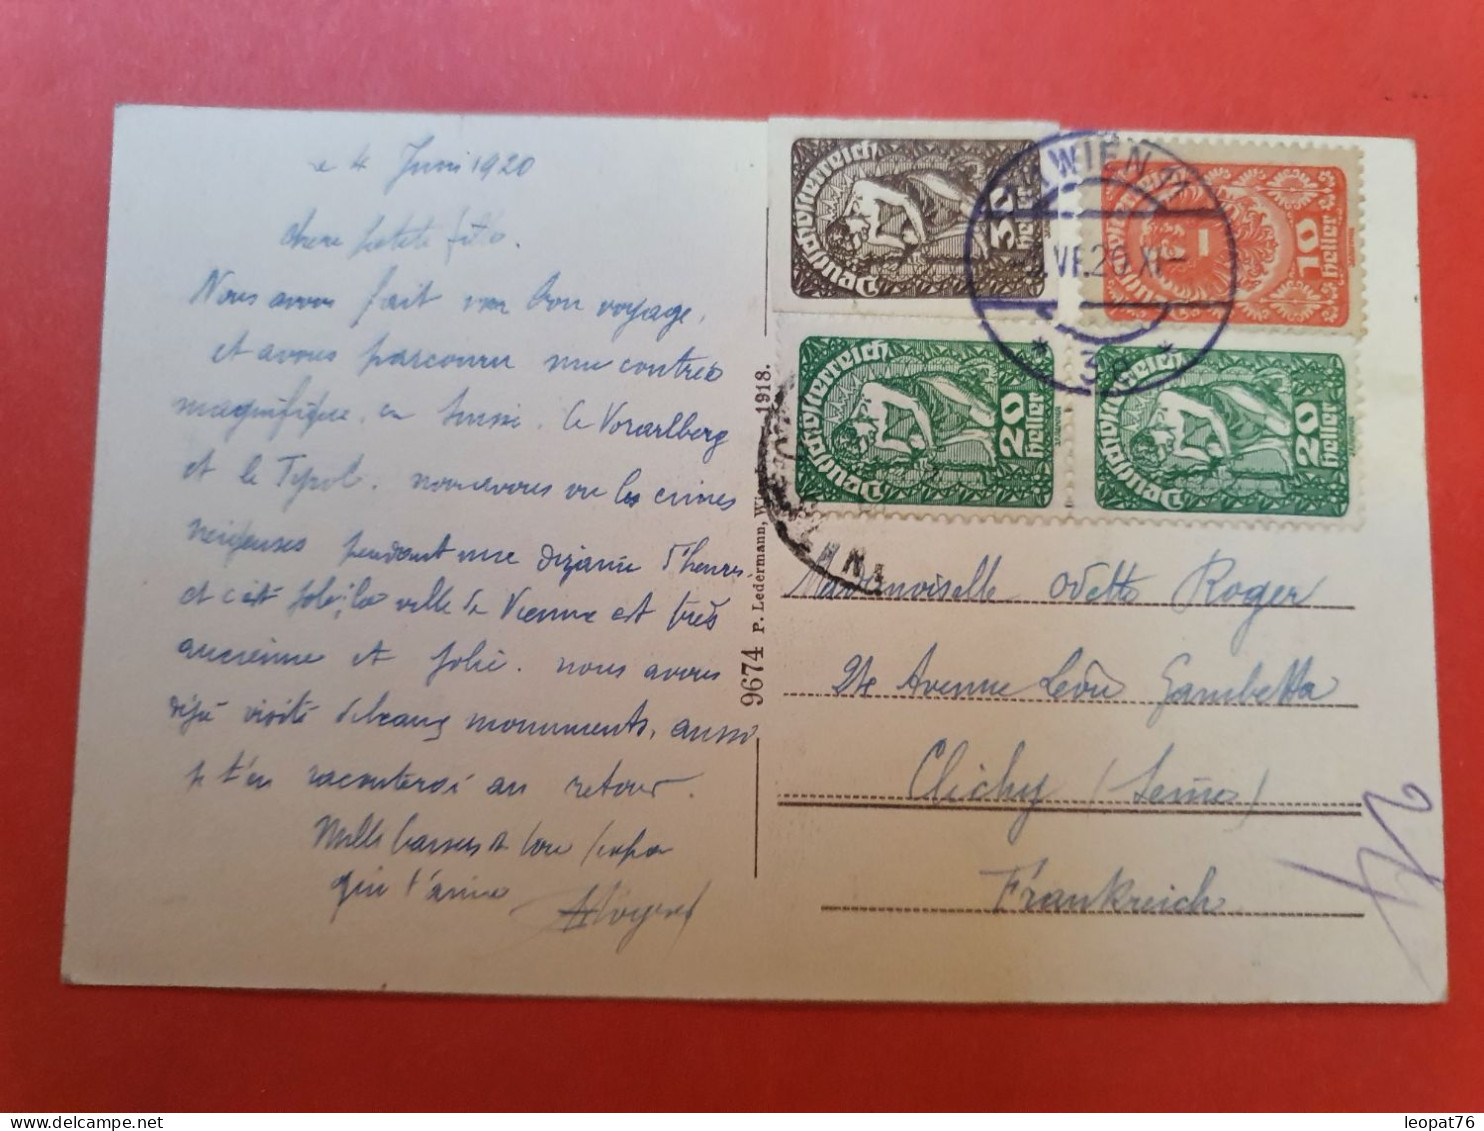 le 4 Juni 1920
chere petite fille.
Nous avons fait un bon voyage,
et avons parcouru une contrée
magnifique. en Suisse. le Vorarlberg
et le Tyrol. nous avons vu les cimes
neigeuses pendant une dizaine d'heures
et c'est joli, la ville de Vienne est très
ancienne et jolie. nous avons
déjà visité de beaux monuments, aussi
je t'en raconterai au retour.
Mille baisers de ton papa
qui t'aime
9674 P. Ledermann, Wi 1918.
Deutschösterreich 30
WIEN 11
VI.20 XI
* 3 *
10 Heller
Deutschösterreich 20 Heller
20 Heller
Mademoiselle Odette Roger
24 Avenue Léon Gambetta
Clichy (Seine)
Frankreich
leopat76